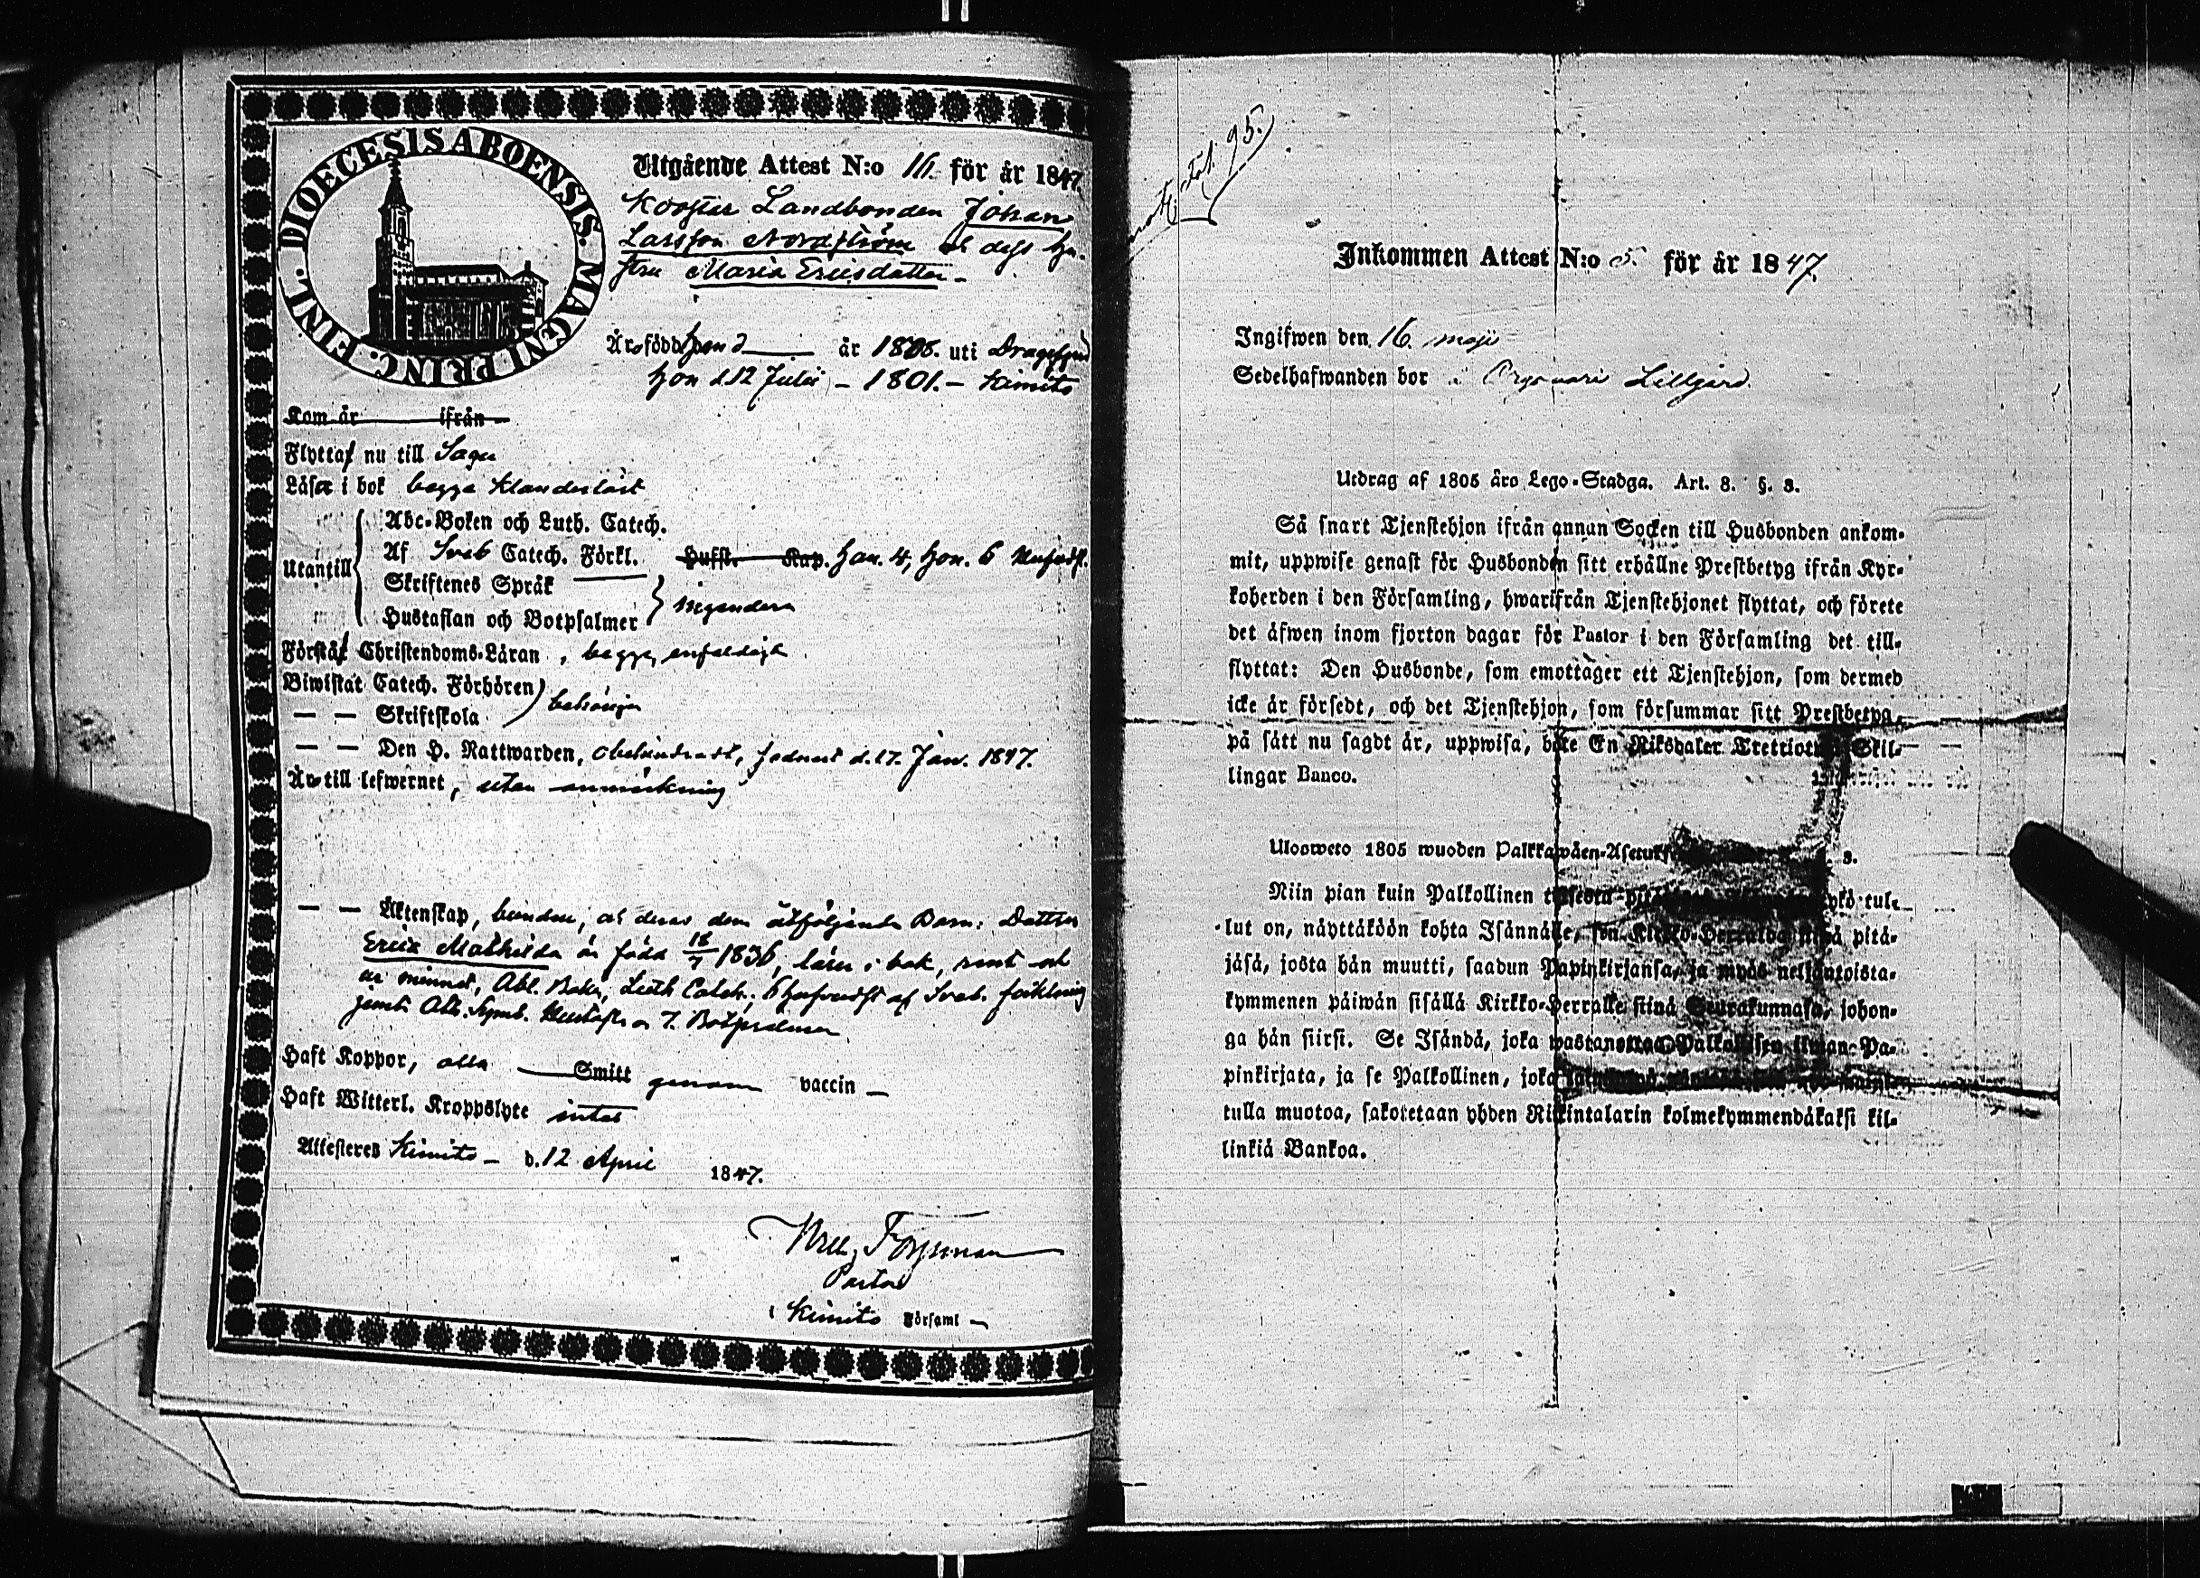 DIOECESIS ABOENSIS. MAGNI PRINC. FINL.
Utgående Attest N:o 16. för år 1847.
Landbonden Johan
Larsson Nordström och dess hu-
stru Maria Ericsdotter -
Äro född han d — år 1808. uti Dragsfjerd
hon d 12 Julii - 1801. - Kimito
Kom år ifrån
Flyttar nu till Sagu
Läser i bok begge klanderlöst
Utantill
Abc-Boken och Luth. Catech.
Af Sveb Catech. Förkl. Hufst. Kap. han. 4, hon. 6
Skriftenes Språk
Hustaflan och Botpsalmer
ingendera
Förstår Christendoms-Läran, begge enfaldigt
Biwistat Catech. Förhören
— — Skriftskola
behörigen
— — Den H. Nattwarden, obehindradt, sednast d. 17. Jan. 1847.
Äro till lefwernet, utan anmärkning
— — Äktenskap, bundne, och deras dem åtföljande Barn: Dottren
Erica Mathilda är född 18/7 1836, läser i bok, samt
ur minnet, Abc. Boken, Luth Catech; 6 af Sveb. förklaring
jemte Ath. Symb. Hustafl. o 7. Botpsalmer
Haft Koppor, alla — Smitt genom vaccin —
Haft Witterl. Kroppslyte intet
Attesteres Kimito - d. 12 April 1847.
Pastor
i Kimito Församl —
Fol. 95.
Inkommen Attest N:o 5. för år 1847.
Ingifwen den 16. maji
Sedelhafwanden bor i Lillgård.
Utdrag af 1805 års Lego-Stadga. Art. 8. §. 3.
Så snart Tjenstehjon ifrån annan Socken till Husbonden ankom-
mit, uppwise genast för Husbonden sitt erhållne Prestbetyg ifrån Kyr-
koherden i den Församling, hwarifrån Tjenstehjonet flyttat, och förete
det äfwen inom fjorton dagar för Pastor i den Församling det till-
flyttat: Den Husbonde, som emottager ett Tjenstehjon, som dermed
icke är försedt, och det Tjenstehjon, som försummar sitt Prestbetyg,
på sätt nu sagdt är, uppwisa, böte En Riksdaler Trettiotvå Skil-
lingar Banco.
Uloswето 1805 wuoden Palkkawäen-Asetuksesta 3.
Niin pian kuin Palkollinen toisesta tul-
lut on, näyttäköön kohta Isännälle, sen Kirkko-Herralda siinä pitä-
jäsä, josta hän muutti, saadun Papinkirjansa, ja myös neljäntoista-
kymmenen päiwän sisällä Kirkko-Herralle siinä Seurakunnasa, johon-
ga hän siirsi. Se Isändä, joka wastanottaa Palkollisen ilman Pa-
pinkirjata, ja se Palkollinen, joka
tulla muotoa, sakotetaan yhden Riikintalarin kolmekymmendäkaksi kil-
linkiä Bankoa.